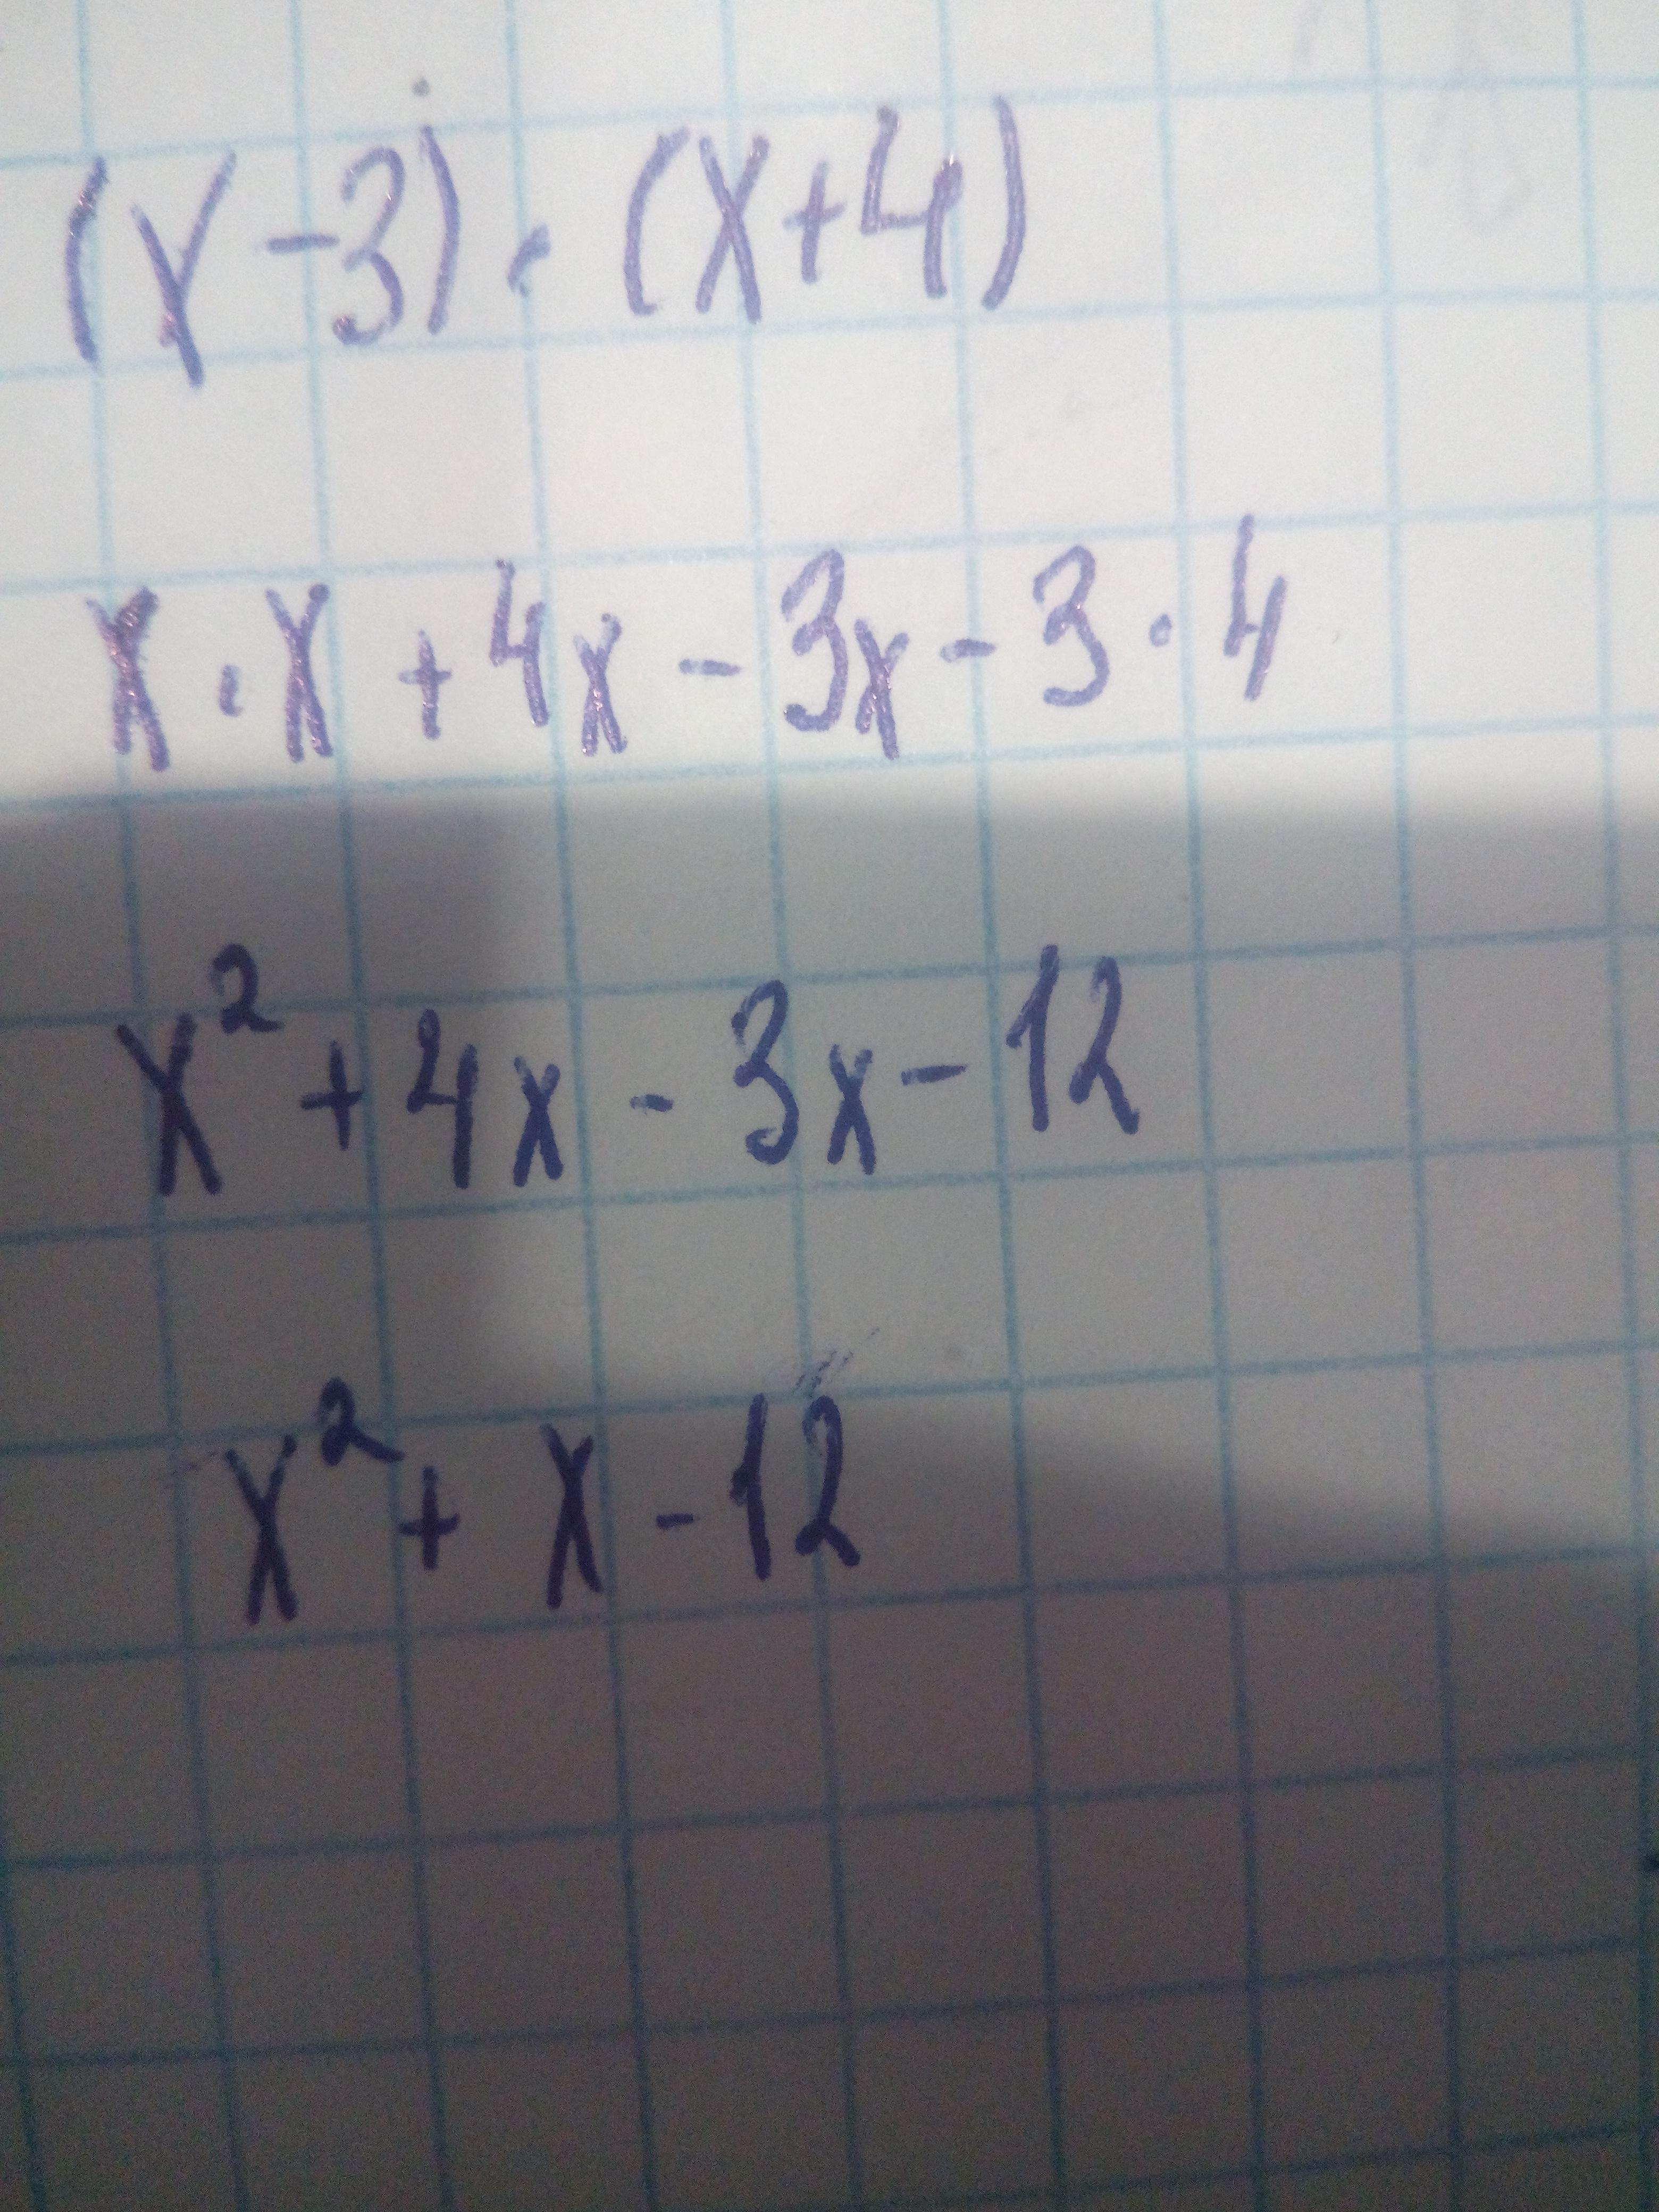 (x-3)·(x+4)
x·x+4x-3x-3·4
x²+4x-3x-12
x²+x-12